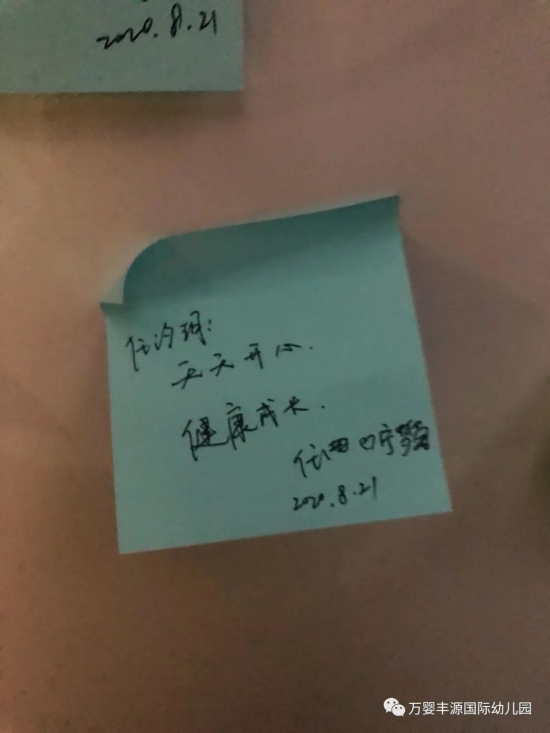 2020.8.21
任汐玥:
天天开心.
健康成长.
2020.8.21
万婴丰源国际幼儿园